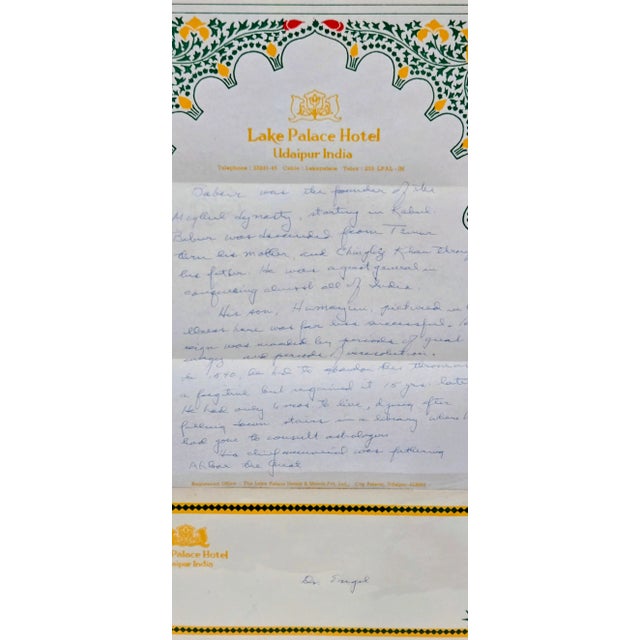 Lake Palace Hotel
Udaipur India
Babur was the founder of the
Moghul dynasty, starting in Kabul.
Babur was descended from Timur
thru his mother, and Chinghiz Khan through
his father. He was a great general in
conquering almost all of India.
His son, Humayun, pictured in
illness here was far less successful.
reign was marked by periods of great
energy and periods of
1540, he had to abandon his throne
a fugitive but regained it 15 yrs. late
He had only 6 mos to live, dying after
falling down stairs in a library where
had gone to consult astrologers
His chief memorial was fathering
Akbar the Great
Registered Office : The Lake Palace Hotels & Motels Pvt. Ltd., City Palace, Udaipur
Palace Hotel
aipur India
Dr. Engel